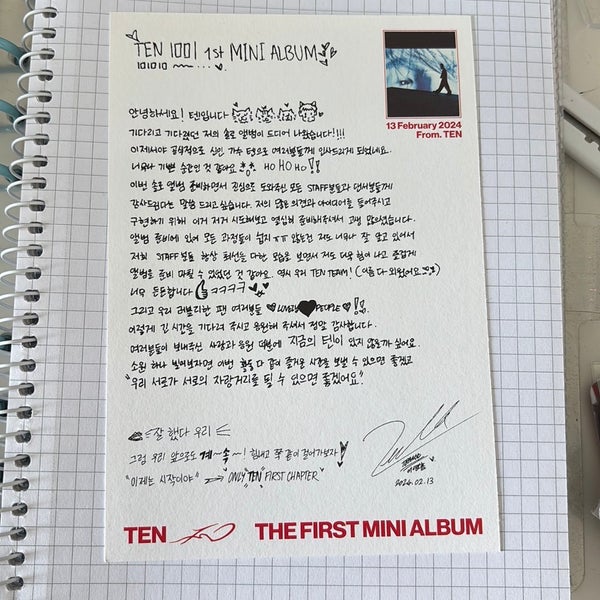 TEN 1001 1st MINI ALBUM
101010
13 February 2024
From. TEN
안녕하세요! 텐입니다
기다리고 기다렸던 저의 솔로 앨범이 드디어 나왔습니다!!!!
이제서야 공식적으로 신인 가수 텐으로 여러분들께 인사드리게 되었네요.
너무나 기쁜 순간인 것 같아요 HO HO HO !!
이번 솔로 앨범 준비하면서 진심으로 도와주신 모든 STAFF분들과 댄서분들께
감사드린다는 말씀 드리고 싶습니다. 저의 많은 의견과 아이디어를 들어주시고
구현하기 위해 이거 저거 시도해보고 열심히 준비해주셔서 고생 많으셨습니다.
앨범 준비에 있어 모든 과정들이 쉽지 ㅠㅠ 않는건 저도 너무나 잘 알고 있어서
저희 STAFF분들 항상 최선을 다한 모습을 보면서 저도 더욱 힘이 나고 즐겁게
앨범을 준비 마칠 수 있었던 것 같아요. 역시 우리 TEN TEAM! (이름 다 외웠어요)
너무 든든합니다 ㅋㅋㅋㅋ
그리고 우리 러블리한 팬 여러분들 LOVELY PEOPLE !!
이렇게 긴 시간을 기다려 주시고 응원해 주셔서 정말 감사합니다.
여러분들이 보내주신 사랑과 응원 덕분에 지금의 텐이 있지 않을까 싶어요.
소원 하나 빌어보자면 이번 활동 다 같이 즐거운 시간을 보낼 수 있으면 좋겠고
"우리 서로가 서로의 자랑거리를 될 수 있으면 좋겠어요."
잘 했다 우리
그럼 우리 앞으로도 계~속~! 힘내고 쭉 같이 걸어가보자!
"이제는 시작이야" → ONLY "TEN" FIRST CHAPTER
2024.02.13
TEN THE FIRST MINI ALBUM